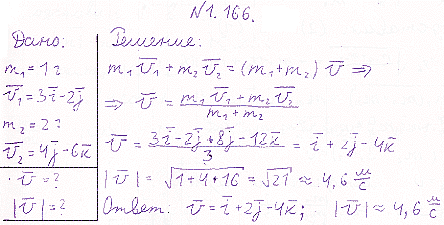 N1.166.
Дано:
m₁=1г
v̄₁=3ī-2j̄
m₂=2г
v̄₂=4j̄-6k̄
v̄=?
|v̄|=?
Решение:
m₁v̄₁+m₂v̄₂=(m₁+m₂)v̄ ⇒
⇒ v̄=(m₁v̄₁+m₂v̄₂)/(m₁+m₂)
v̄=(3ī-2j̄+8j̄-12k̄)/3=ī+2j̄-4k̄
|v̄|=√(1+4+16)=√21≈4,6 м/с
Ответ: v̄=ī+2j̄-4k̄; |v̄|≈4,6 м/с